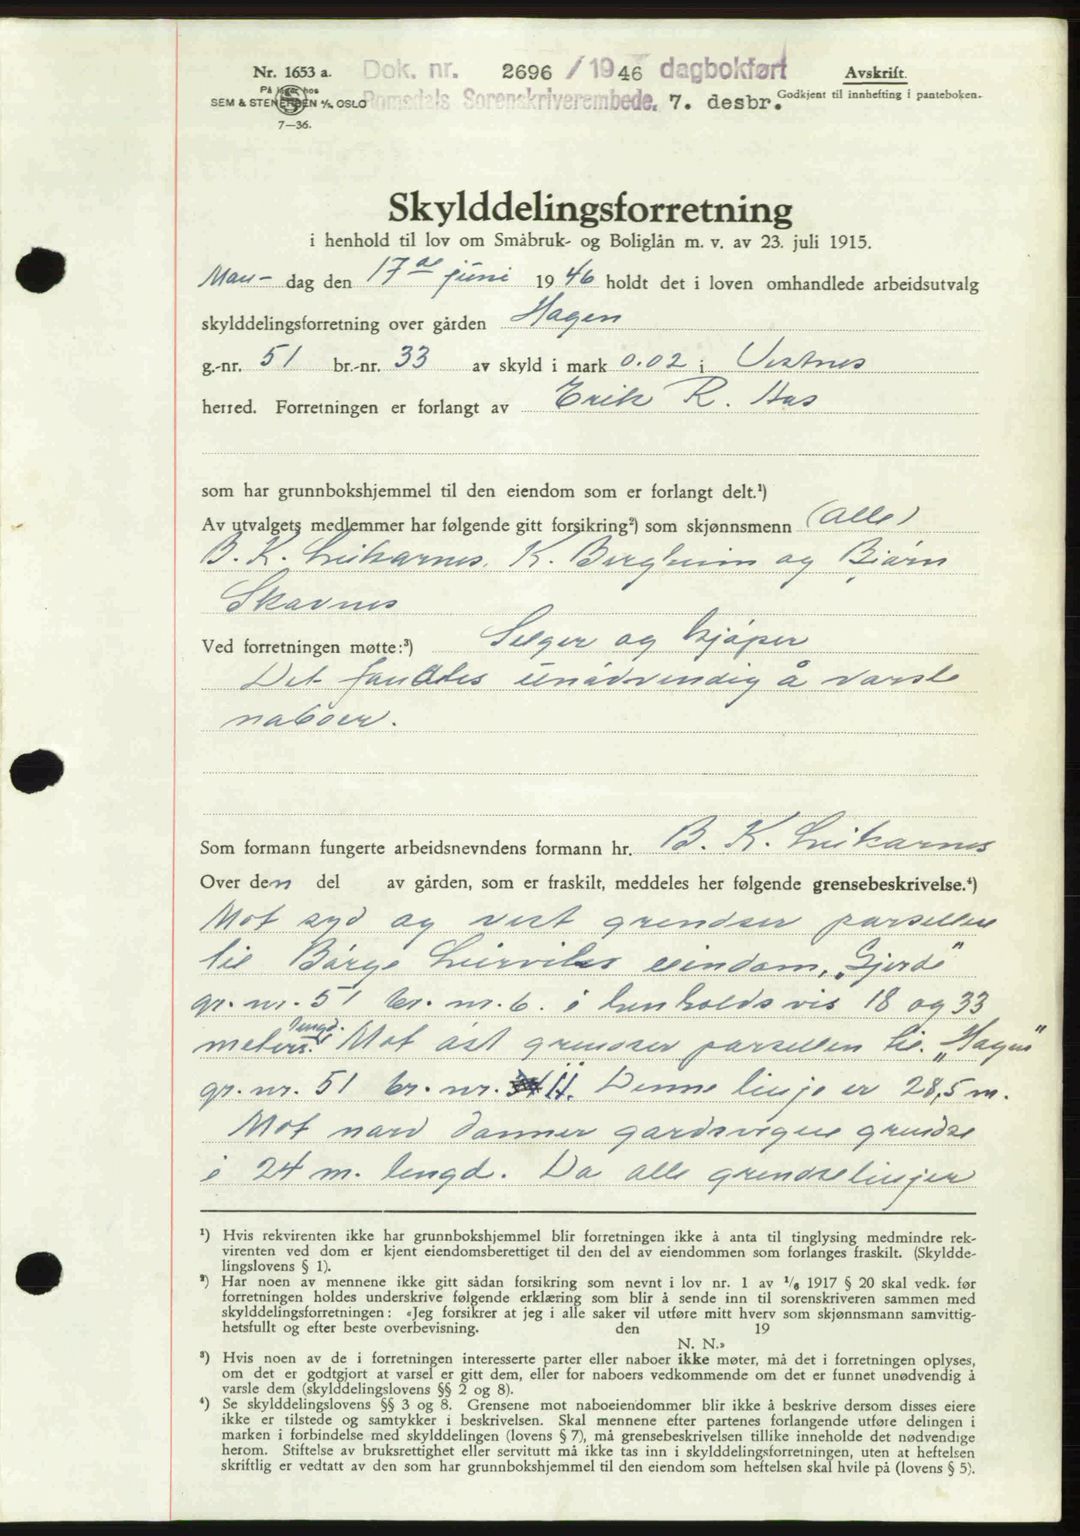 Nr. 1653 a.
På lager hos
SEM & STENERSEN A/S, OSLO
7—36.
Dok. nr. 2696 / 1946 dagbokført
Romsdals Sorenskriverembede. 7. desbr.
Avskrift.
Godkjent til innhefting i panteboken.
Skylddelingsforretning
i henhold til lov om Småbruk- og Boliglån m. v. av 23. juli 1915.
Man- dag den 17de juni 1946 holdt det i loven omhandlede arbeidsutvalg
skylddelingsforretning over gården Hagen
g.-nr. 51 br.-nr. 33 av skyld i mark 0.02 i Vestnes
herred. Forretningen er forlangt av Erik R. Aas
som har grunnbokshjemmel til den eiendom som er forlangt delt.¹)
Av utvalgets medlemmer har følgende gitt forsikring²) som skjønnsmenn (alle)
B. K. Leikarnes, K. Bergheim og Bjørn
Skavnes
Ved forretningen møtte:³) Selger og kjøper
Det fandtes unødvendig å varsle
naboer.
Som formann fungerte arbeidsnevndens formann hr. B. K. Leikarnes
Over den del av gården, som er fraskilt, meddeles her følgende grensebeskrivelse.⁴)
Mot syd og vest grendser parsellen
til Børge Leirviks eiendom, „Gjerde"
gr. nr. 51 br. nr. 6. i henholdsvis 18 og 33
meters lengd. Mot øst grendser parsellen til „Hagen"
gr. nr. 51 br. nr. 11. Denne linje er 28,5 m.
Mot nord danner gardsvegen grendse
i 24 m. lengd. Da alle grendselinjer
¹) Hvis rekvirenten ikke har grunnbokshjemmel blir forretningen ikke å anta til tinglysing medmindre rek-
virenten ved dom er kjent eiendomsberettiget til den del av eiendommen som forlanges fraskilt. (Skyldde-
lingslovens § 1).
²) Har noen av mennene ikke gitt sådan forsikring som nevnt i lov nr. 1 av 1/6 1917 § 20 skal vedk. før
forretningen holdes underskrive følgende erklæring som blir å sende inn til sorenskriveren sammen med
skylddelingsforretningen: «Jeg forsikrer at jeg i alle saker vil utføre mitt hverv som skjønnsmann samvittig-
hetsfullt og efter beste overbevisning. den 19
N. N.»
³) Hvis noen av de i forretningen interesserte parter eller naboer ikke møter, må det i forretningen oplyses,
om det er godtgjort at varsel er gitt dem, eller for naboers vedkommende om det er funnet unødvendig å
varsle dem (skylddelingslovens §§ 2 og 8).
⁴) Se skylddelingslovens §§ 3 og 8. Grensene mot naboeiendommer blir ikke å beskrive dersom disses eiere
ikke er tilstede og samtykker i beskrivelsen. Skal mennene efter partenes forlangende utføre delingen i
marken i forbindelse med skylddelingen (lovens § 7), må grensebeskrivelsen tillike inneholde det nødvendige
herom. Stiftelse av bruksrettighet eller servitutt må ikke tas inn i skylddelingsforretningen, uten at heftelsen
skriftlig er vedtatt av den som har grunnbokshjemmel til den eiendom som heftelsen skal hvile på (lovens § 5).